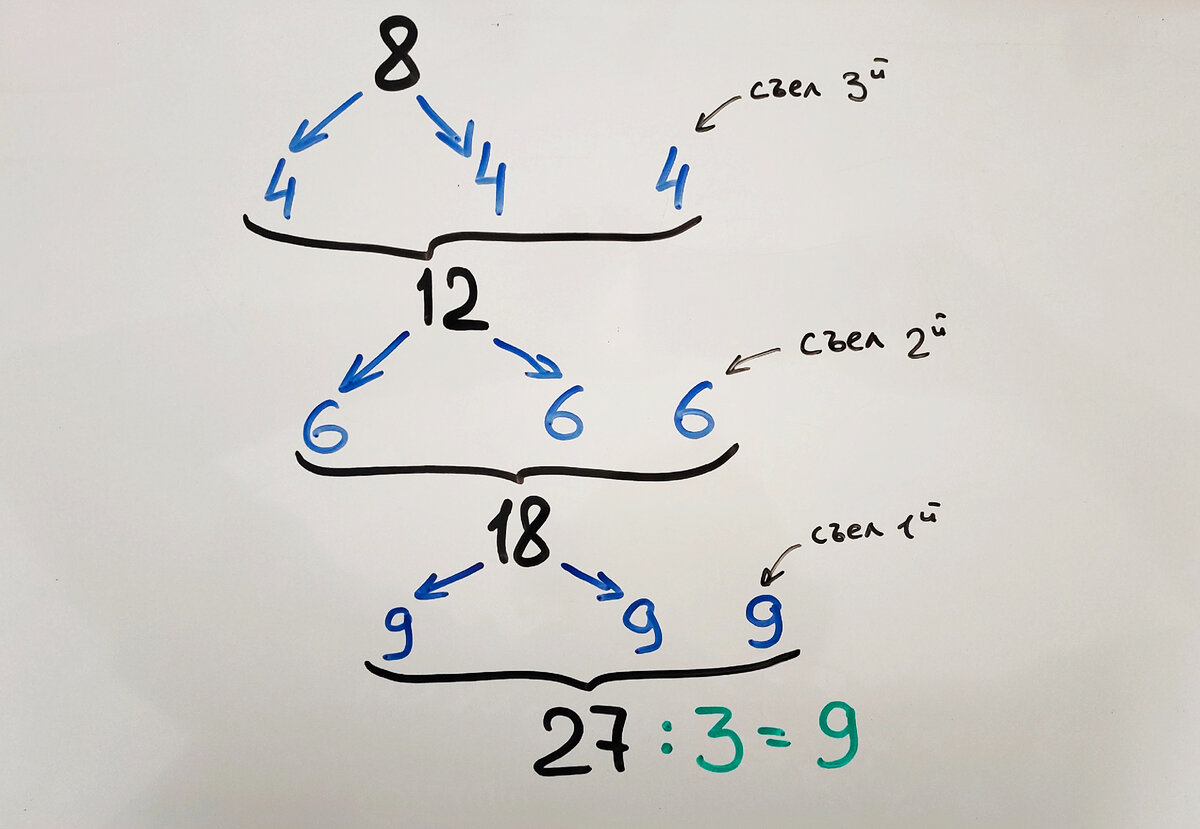 8
4 4 4 съел 3й
12
6 6 6 съел 2й
18
9 9 9 съел 1й
27 : 3 = 9